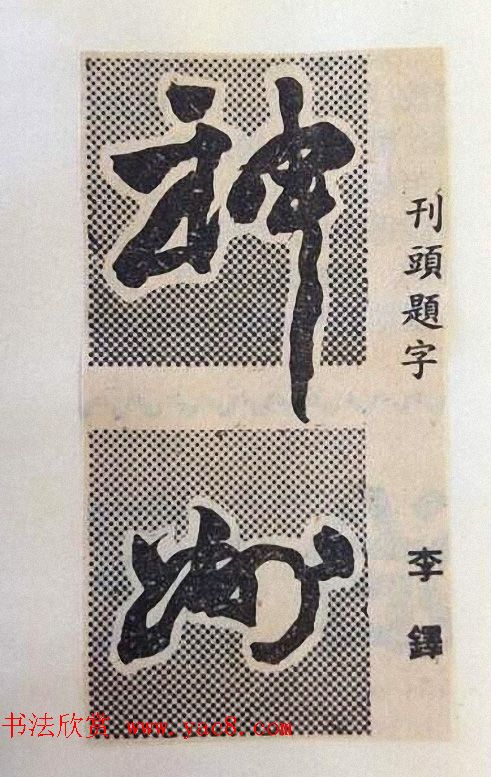 神州
刊頭題字 李鐸
书法欣赏 www.yac8.com